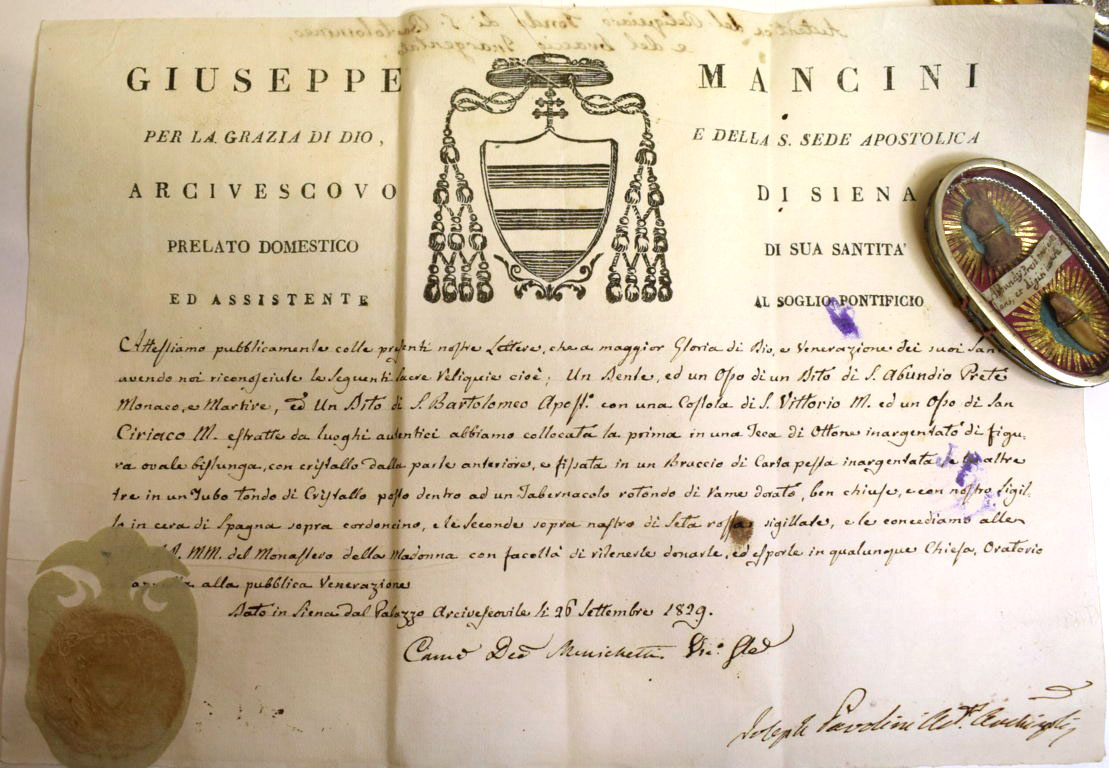 Autentica del Reliquiario Tondo di S. Bartolommeo,
e del braccio Inargentato
GIUSEPPE MANCINI
PER LA GRAZIA DI DIO, E DELLA S. SEDE APOSTOLICA
ARCIVESCOVO DI SIENA
PRELATO DOMESTICO DI SUA SANTITA'
ED ASSISTENTE AL SOGLIO PONTIFICIO
Attestiamo pubblicamente colle presenti nostre Lettere, che a maggior Gloria di Dio, e Venerazione dei suoi
avendo noi riconosciute le seguenti sacre Reliquie cioè; Un Dente, ed un Osso di un Dito di S. Abundio Prete
Monaco, e Martire, ed Un Dito di S. Bartolomeo Apost.º con una Costola di S. Vittorio M. ed un Osso di San
Ciriaco M. estratte da luoghi autentici abbiamo collocata la prima in una Teca di Ottone inargentato di figu-
ra ovale bislunga, con cristallo dalla parte anteriore, e fissata in un Braccio di Carta pesta inargentata, e le altre
tre in un Tubo tondo di Cristallo posto dentro ad un Tabernacolo rotondo di rame dorato, ben chiuse, e con nostro sigil-
lo in cera di Spagna sopra cordoncino, e le seconde sopra nastro di Seta rossa sigillate, e le concediamo alle
MM. del Monastero della Madonna con facoltà di ritenerle donarle, ed esporle in qualunque Chiesa, Oratorio
alla pubblica Venerazione
Dato in Siena dal Palazzo Arcivescovile li 26 Settembre 1829.
Menichetti
Joseph Pavolini